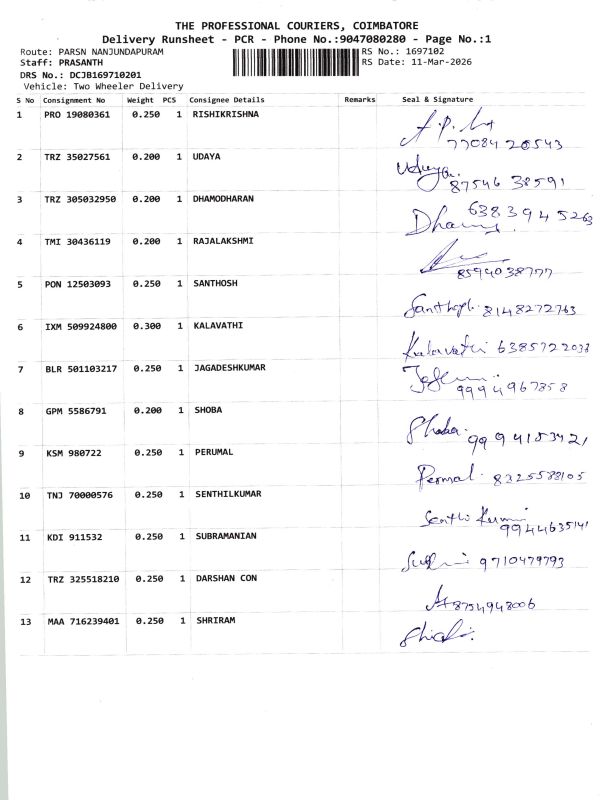 THE PROFESSIONAL COURIERS, COIMBATORE
Delivery Runsheet - PCR - Phone No.:9047080280 - Page No.:1
Route: PARSN NANJUNDAPURAM RS No.: 1697102
Staff: PRASANTH RS Date: 11-Mar-2026
DRS No.: DCJB169710201
Vehicle: Two Wheeler Delivery
S No Consignment No Weight PCS Consignee Details Remarks Seal & Signature
1 PRO 19080361 0.250 1 RISHIKRISHNA
77084 20543
2 TRZ 35027561 0.200 1 UDAYA Udaya
87546 38591
3 TRZ 305032950 0.200 1 DHAMODHARAN 6383945263
4 TMI 30436119 0.200 1 RAJALAKSHMI
8594038777
5 PON 12503093 0.250 1 SANTHOSH
Santhosh 8148272763
6 IXM 509924800 0.300 1 KALAVATHI
Kalavathi 6385722038
7 BLR 501103217 0.250 1 JAGADESHKUMAR
9994967858
8 GPM 5586791 0.200 1 SHOBA
Shoba. 9994153421
9 KSM 980722 0.250 1 PERUMAL
Permal. 8225588105
10 TNJ 70000576 0.250 1 SENTHILKUMAR
Senthi Kumar
9944635141
11 KDI 911532 0.250 1 SUBRAMANIAN
9710479793
12 TRZ 325518210 0.250 1 DARSHAN CON
8754948006
13 MAA 716239401 0.250 1 SHRIRAM